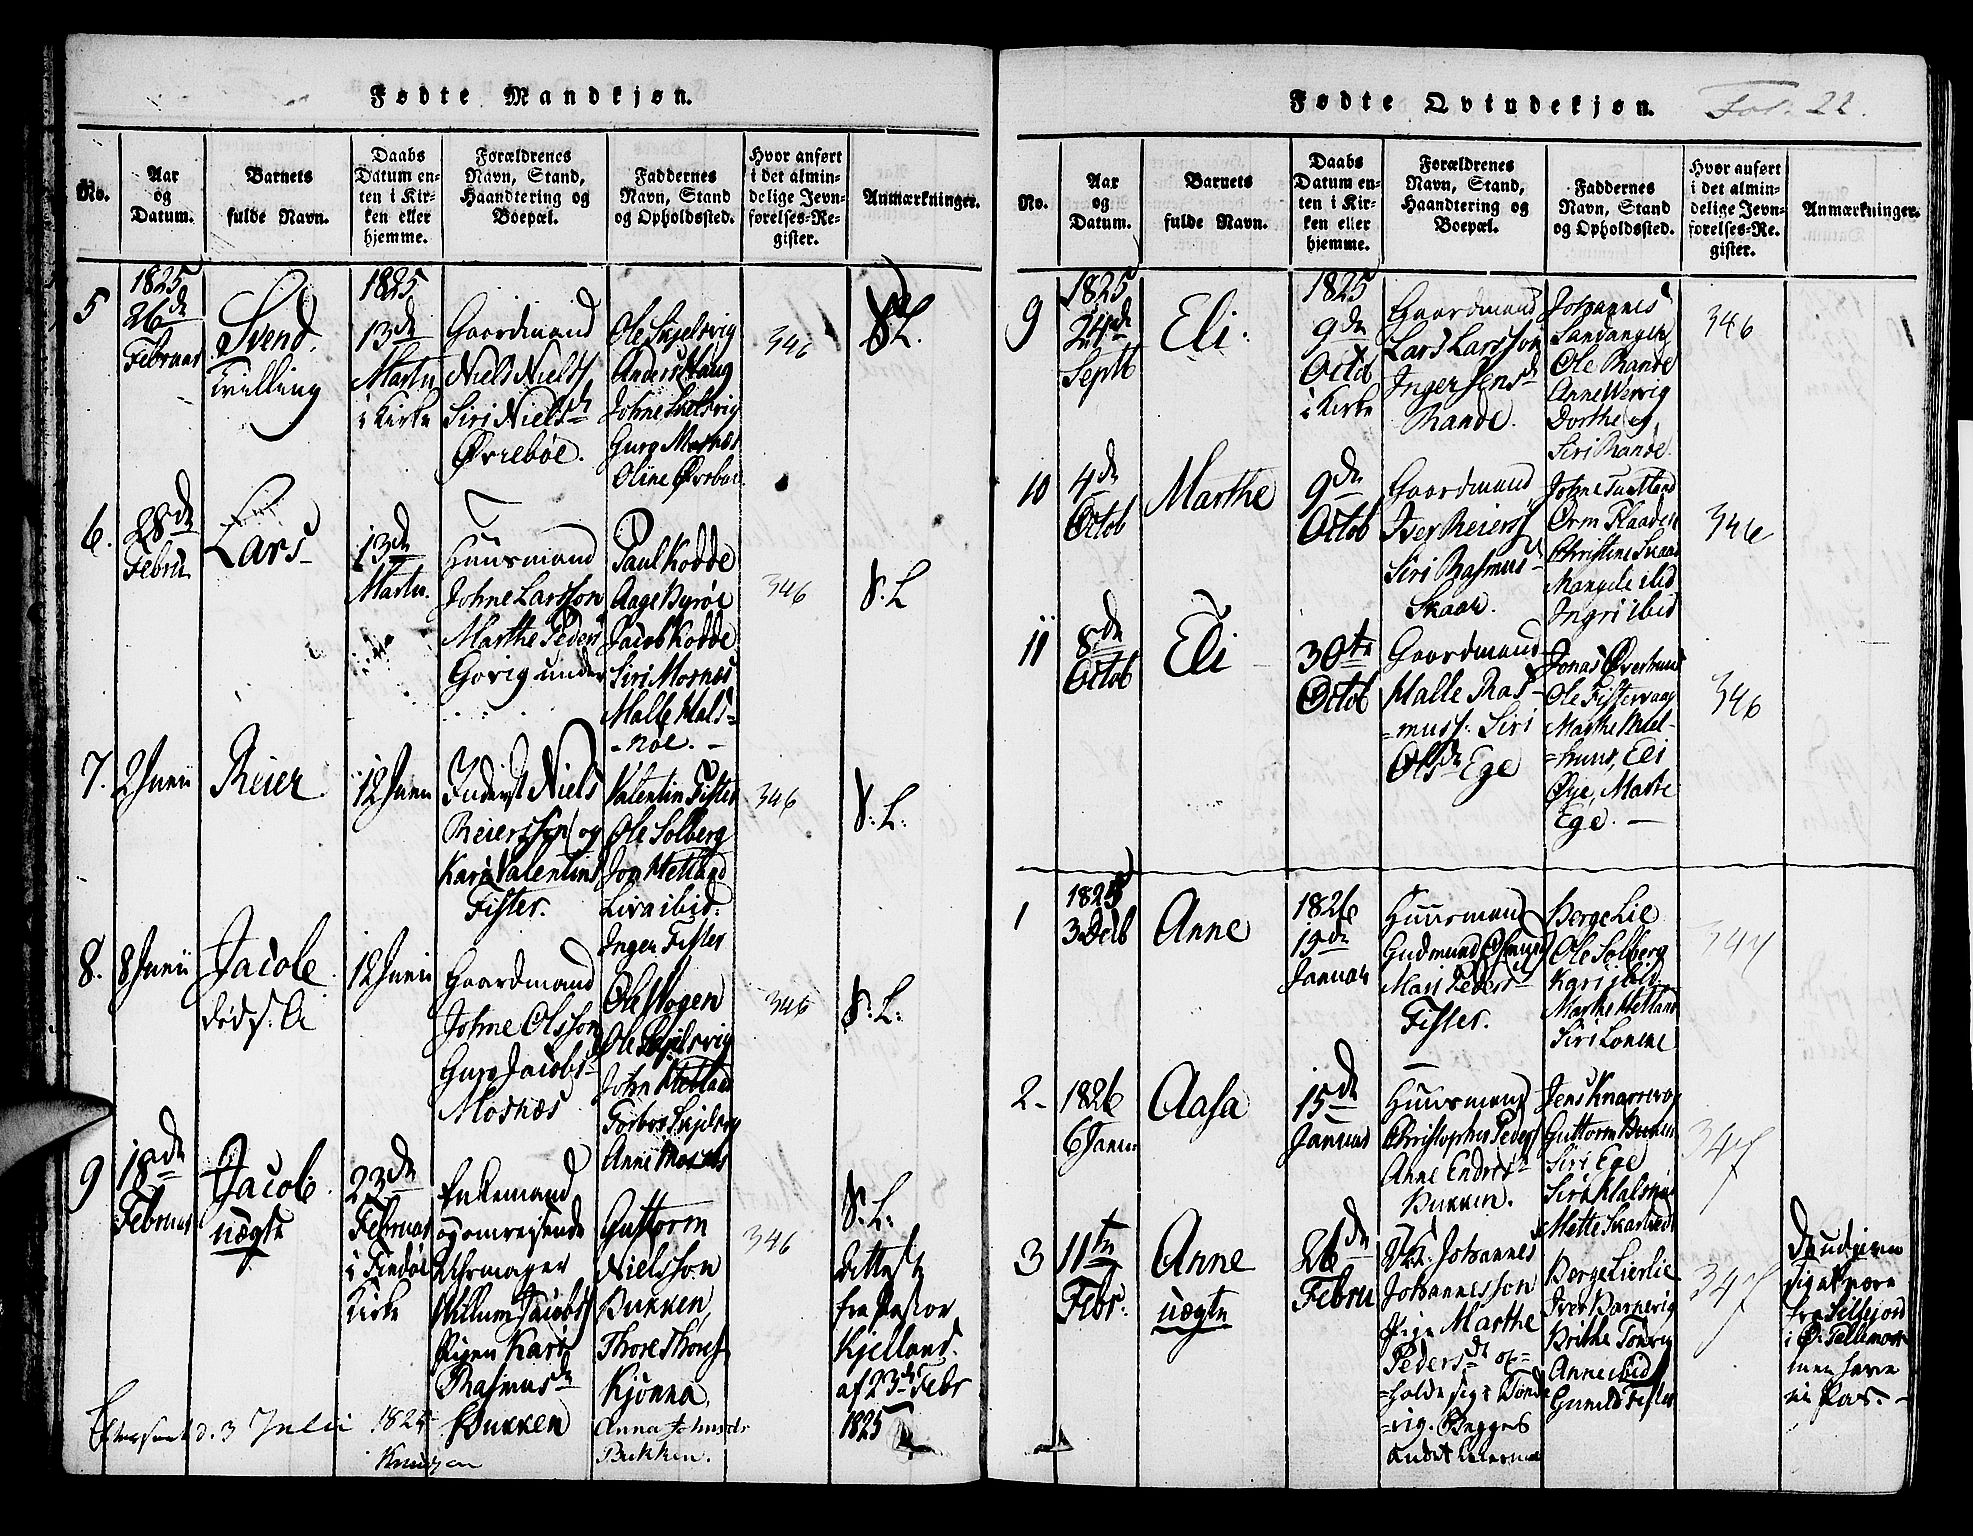 Fødte Mandkjøn.
No.
Aar
og
Datum.
Barnets
fulde Navn.
Daabs
Datum en-
ten i Kir-
ken eller
hjemme.
Forældrenes
Navn, Stand,
Haandtering og
Boepæl.
Faddernes
Navn, Stand
og Opholdssted.
Hvor anført
i det almin-
delige Jevn-
førelses-Re-
gister.
Anmærkninger.
5
1825
26de
Februar
Svend
tvilling
1825
13de
Martii
i Kirke
Gaardmand
Niels Niels
Siri Nielsd
Øvrebøe.
Ole Skjelsvig
Anders Haug
Johne Skelsvig
Guro Mosnæs
Oline Øvrebøe
346
V. L.
6.
28de
Febru
Lars
13de
Martii.
Huusmand
Johne Larsson
Marthe Peders
Govig under
Paul Kodde
Aage Byrøe
Jacob Kodde
Siri Mosnæs
Malle Hals-
-nøe.
346
V. L
7.
2 Junii
Reier
12 Junii
Inderst Niels
Reiersson og
Kari Valentins
Fister.
Valentin Fister
Ole Solberg
Jon Hetland
Liva ibid.
Inger Fister
346
V. L.
8.
8 Junii
Jacob
død
12 Junii
Gaardmand
Johne Olsson
Guro Jacobs
Mosnæs
Ole Wogen
Ole Skjelsvig
John Hetland
Torbor Skjelsvig
Anne Mosnæs
346
V. L.
9
18de
Februar
Jacob
uægte
23de
Februar
i Findøe
Kirke
Enkemand
og omreisende
Uhrmager
Willum Jacobs
Pigen Kari
Rasmusd
Bukken
Guttorm
Nielsson
Bukken,
Thore Thores
Kjønna,
Anna Johnsdr
Bukken.
346
V. L.
Attest
fra Pastor
Kjelland
af 23de Febr
1825
d. 3 Julii 1825
Knudzen
Fødte Qvindekjøn.
Fol. 22.
No.
Aar
og
Datum.
Barnets
fulde Navn.
Daabs
Datum en-
ten i Kir-
ken eller
hjemme.
Forældrenes
Navn, Stand,
Haandtering og
Boepæl.
Faddernes
Navn, Stand
og Opholdssted.
Hvor anført
i det almin-
delige Jevn-
førelses-Re-
gister.
Anmærkninger.
9
1825
24de
Septb
Eli.
1825
9de
Octob
i Kirke
Gaardmand
Lars Larsson
Inger Jensd
Rande.
Johannes
Sandanger
Ole Rande
Anne Wervig
Dorthe og
Siri Rande.
346
10
4de
Octob
Marthe
9de
Octob
Gaardmand
Iver Reiers
Siri Rasmus
Skaar.
Johne Tuntland
Orm Flaaden
Christine Skaar
Mangele ibid
Ingri ibid
346
11
8de
Octob
Eli
30te
Octob
Gaardmand
Malle Ras-
-muss. Siri
Olsd Ege
Jonas Øverhuus
Ole Fistervaag
Marthe Mel-
-huus, Eli
Øye, Marte
Ege.
346
1
1825
3 Decb
Anne
1826
15de
Januar
Huusmand
Gudmund
Mari Peders
Fister.
Berge Lie
Ole Solberg
Kari ibid.
Marthe Hetland
Siri Lonene
347
2
1826
6 Janu
Aasa
15de
Januar
Huusmand
Christopher Peders
Anne Endresd
Bukken.
Jens Knarrevog
Guttorm Bukken
Siri Ege
Siri Halsnøe
Mette Skartveit
347
3
11te
Febr.
Anne
uægte
26de
Febru
Johannes
Johannesson
Pige Marthe
Pedersd op-
-holde sig i Tønde
-rig. Begges
andet Leiermaal
Berge Lierlie
Iver Barkevig
Brithe Tønrig
Anne ibid
Gunild Fister
347
De udgiver
sig at være
fra Silljord
i Ø. Tellemark
men have
ei Pas.